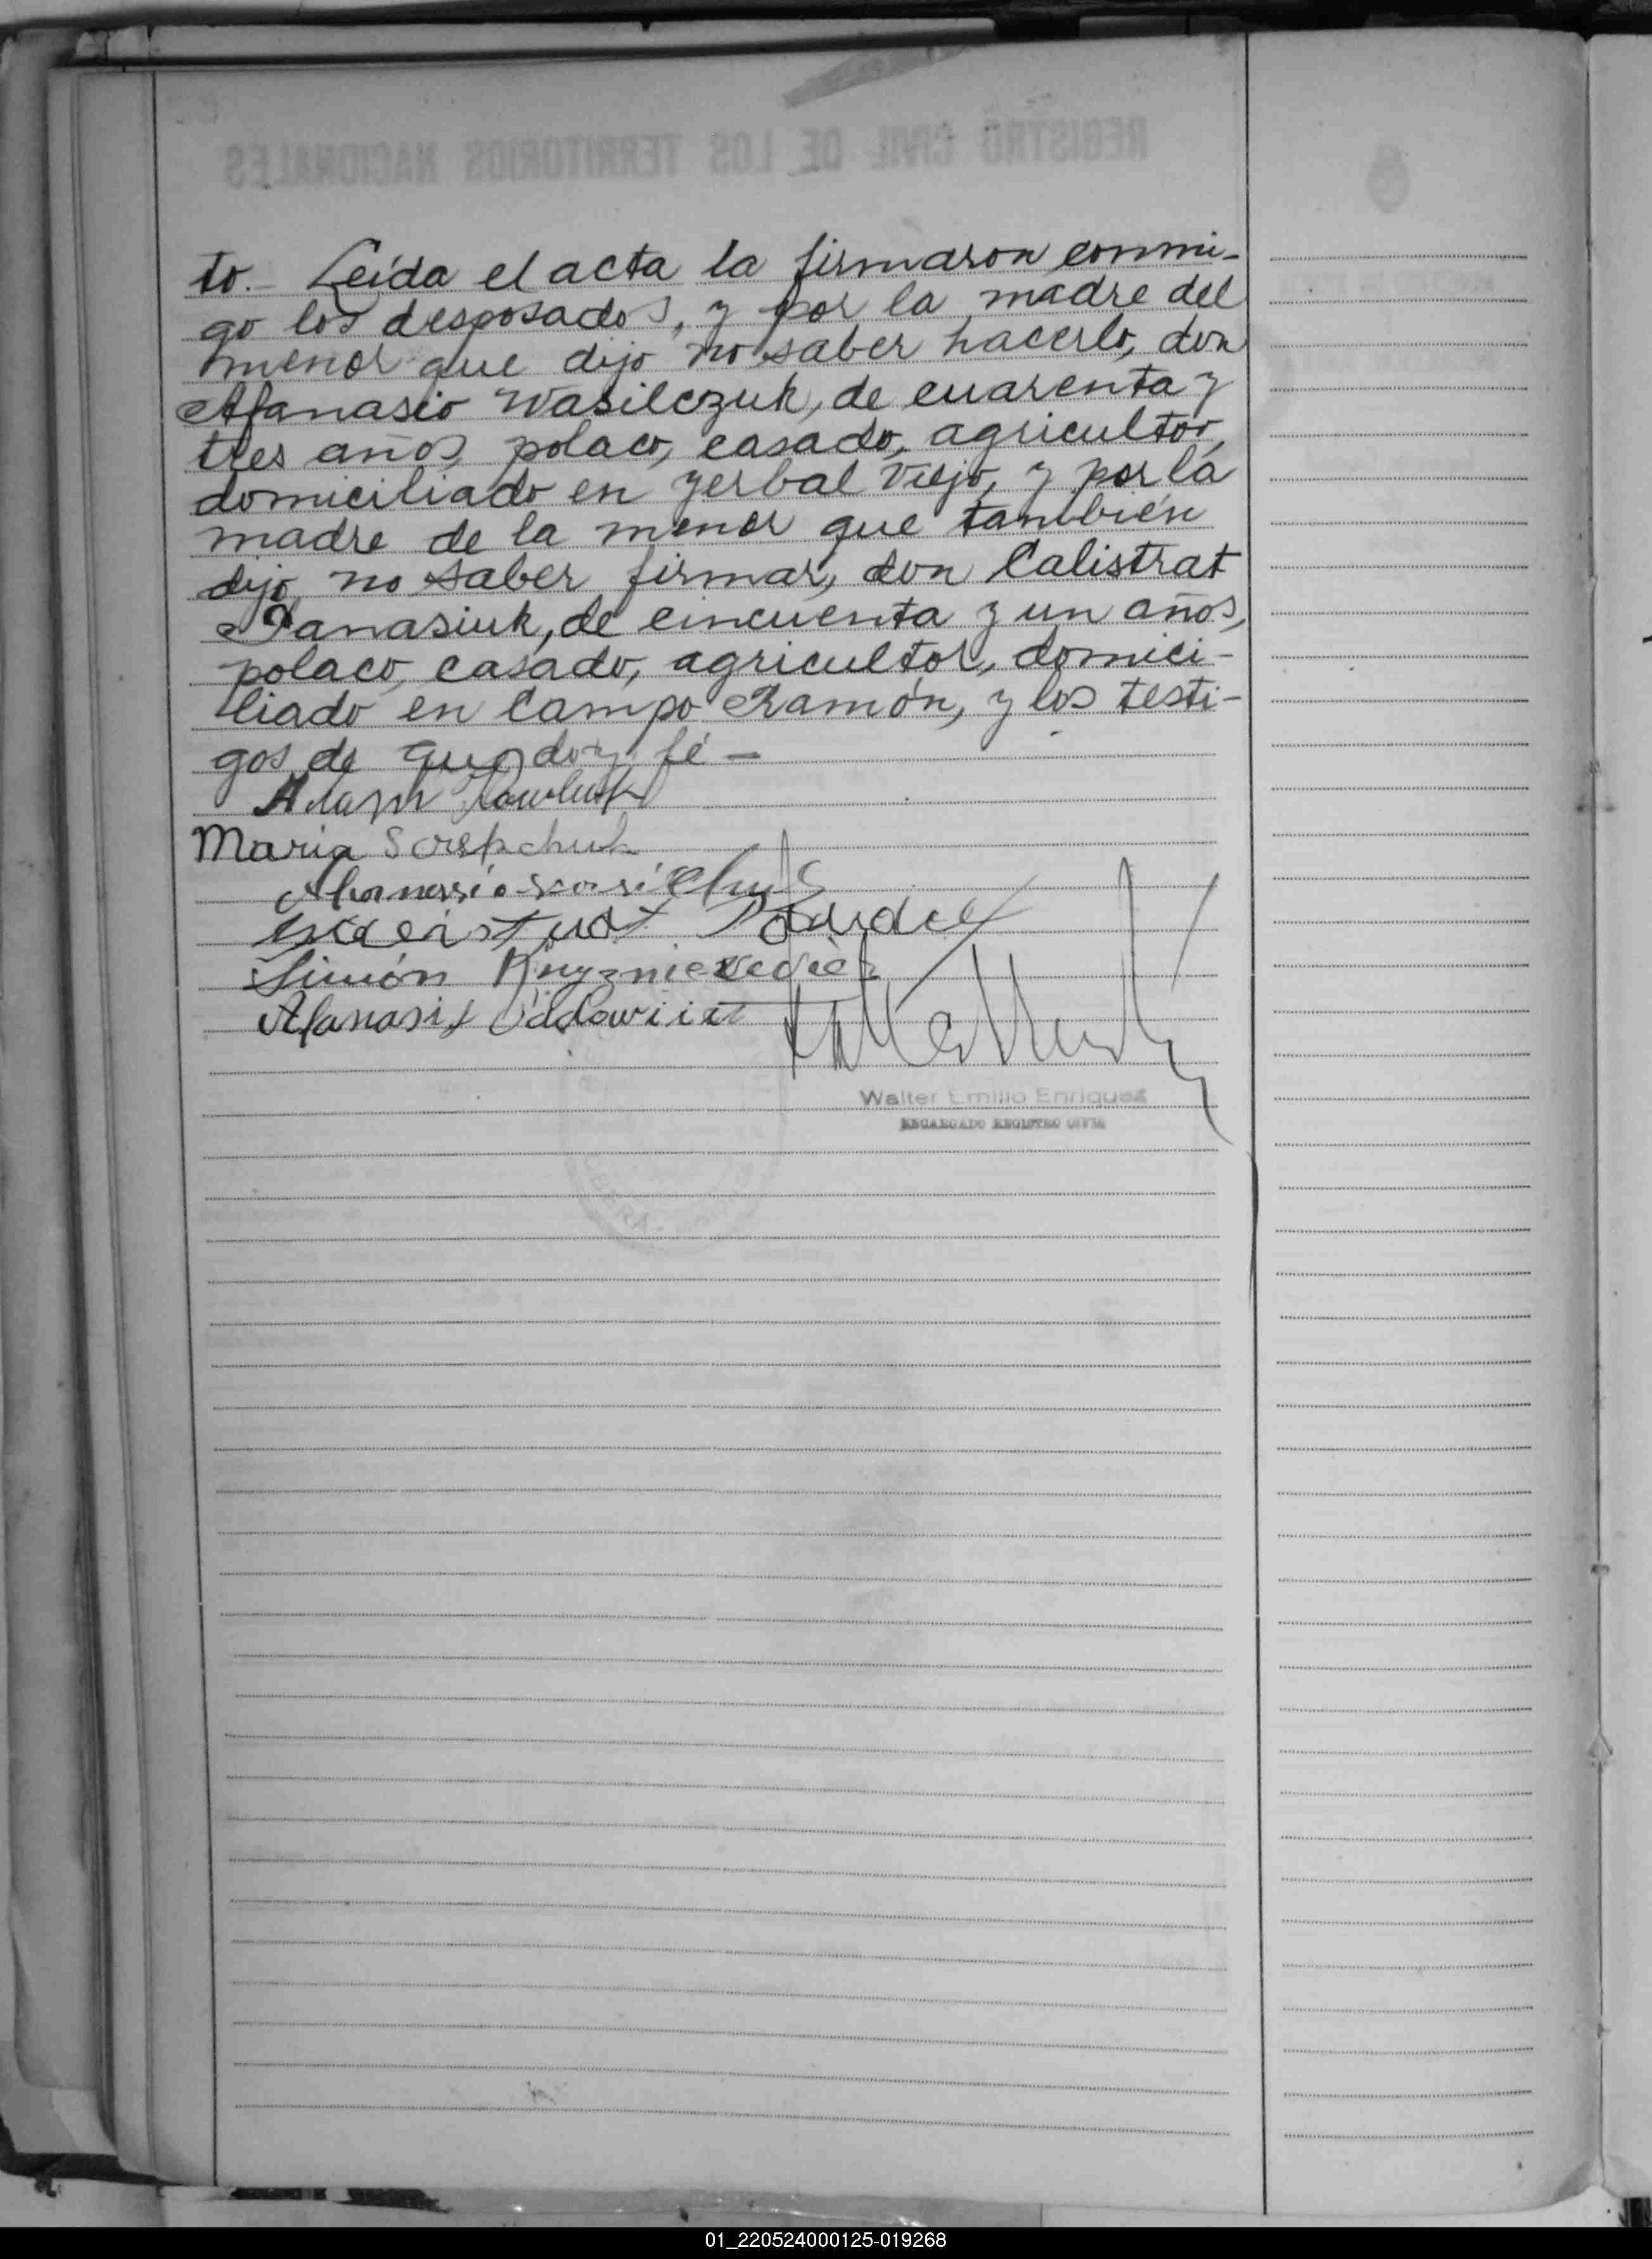 REGISTRO CIVIL DE LOS TERRITORIOS NACIONALES
to.- Leída el acta la firmaron conmi-
go los desposados, y por la madre del
menor que dijo no saber hacerlo, don
Afanasio Wasilczuk, de cuarenta y
tres años, polaco, casado, agricultor,
domiciliado en Yerbal Viejo, y por la
madre de la menor que también
dijo no saber firmar, don Calistrat
Panasiuk, de cincuenta y un años,
polaco, casado, agricultor, domici-
liado en Campo Ramón, y los testi-
gos de que doy fé -
Adam Pawluk
Maria
Simón
Afanasi
Walter Emilio Enriquez
ENCARGADO REGISTRO CIVIL
OBERA
01_220524000125-019268